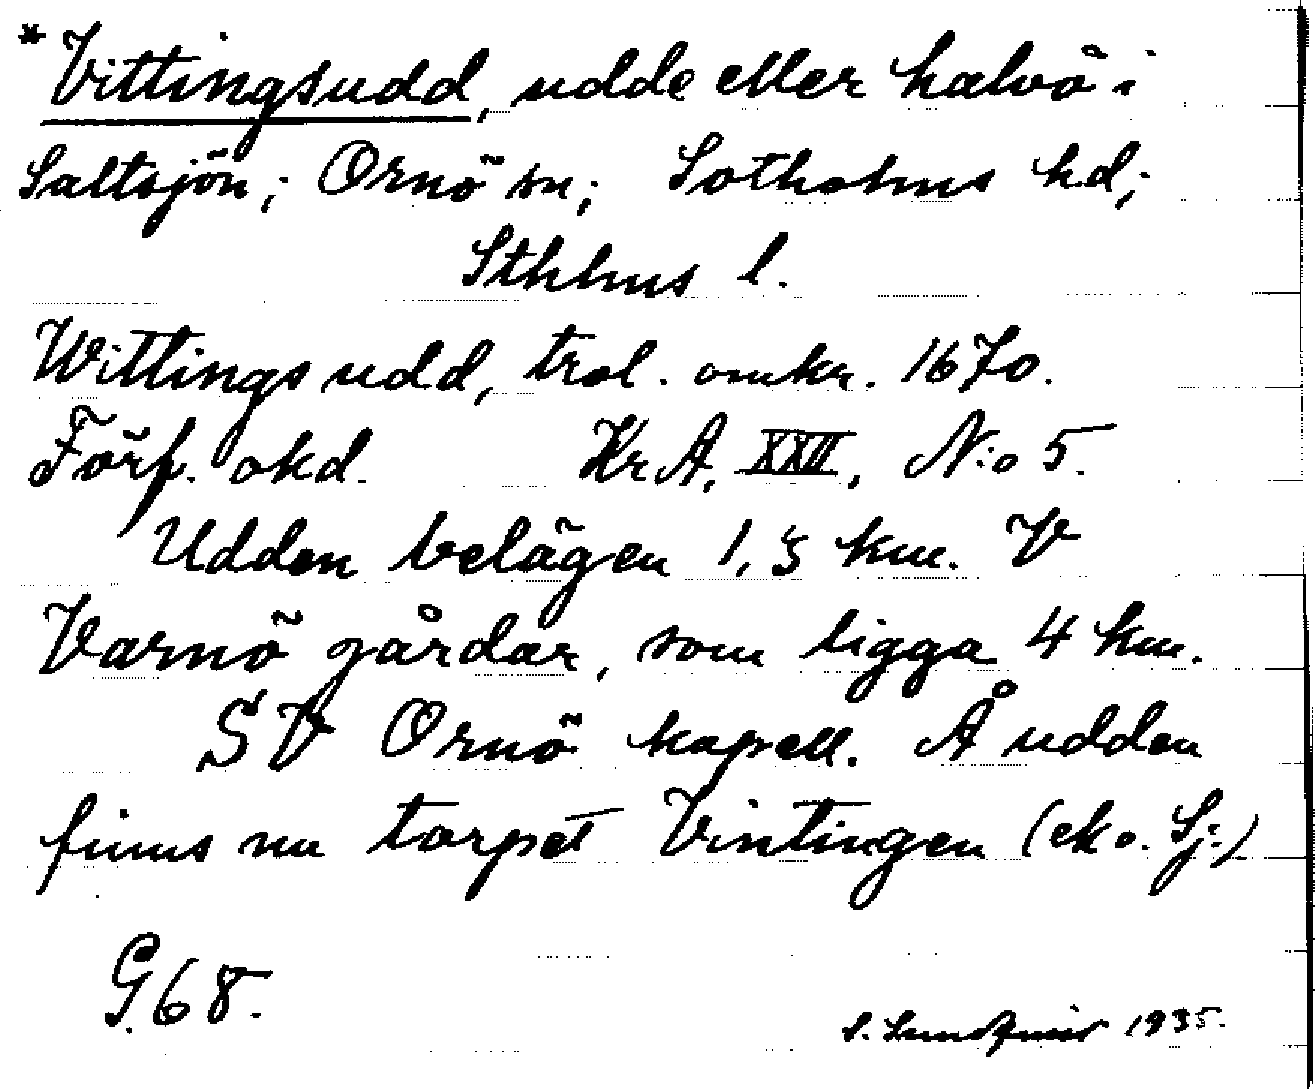 *Vittingsudd, udde eller halvö i
Saltsjön; Ornö sn; Sotholms hd;
Sthlms l.
Wittings udd, trol. omkr. 1670.
Förf. okd. KrA, XXII, N:o 5.
Udden belägen 1,5 km. V
Varnö gårdar, som ligga 4 km.
SV Ornö kapell. Å udden
finns nu torpet Vintingen (ek o. Sj:)
G.68.
S. Lundqvist 1935.